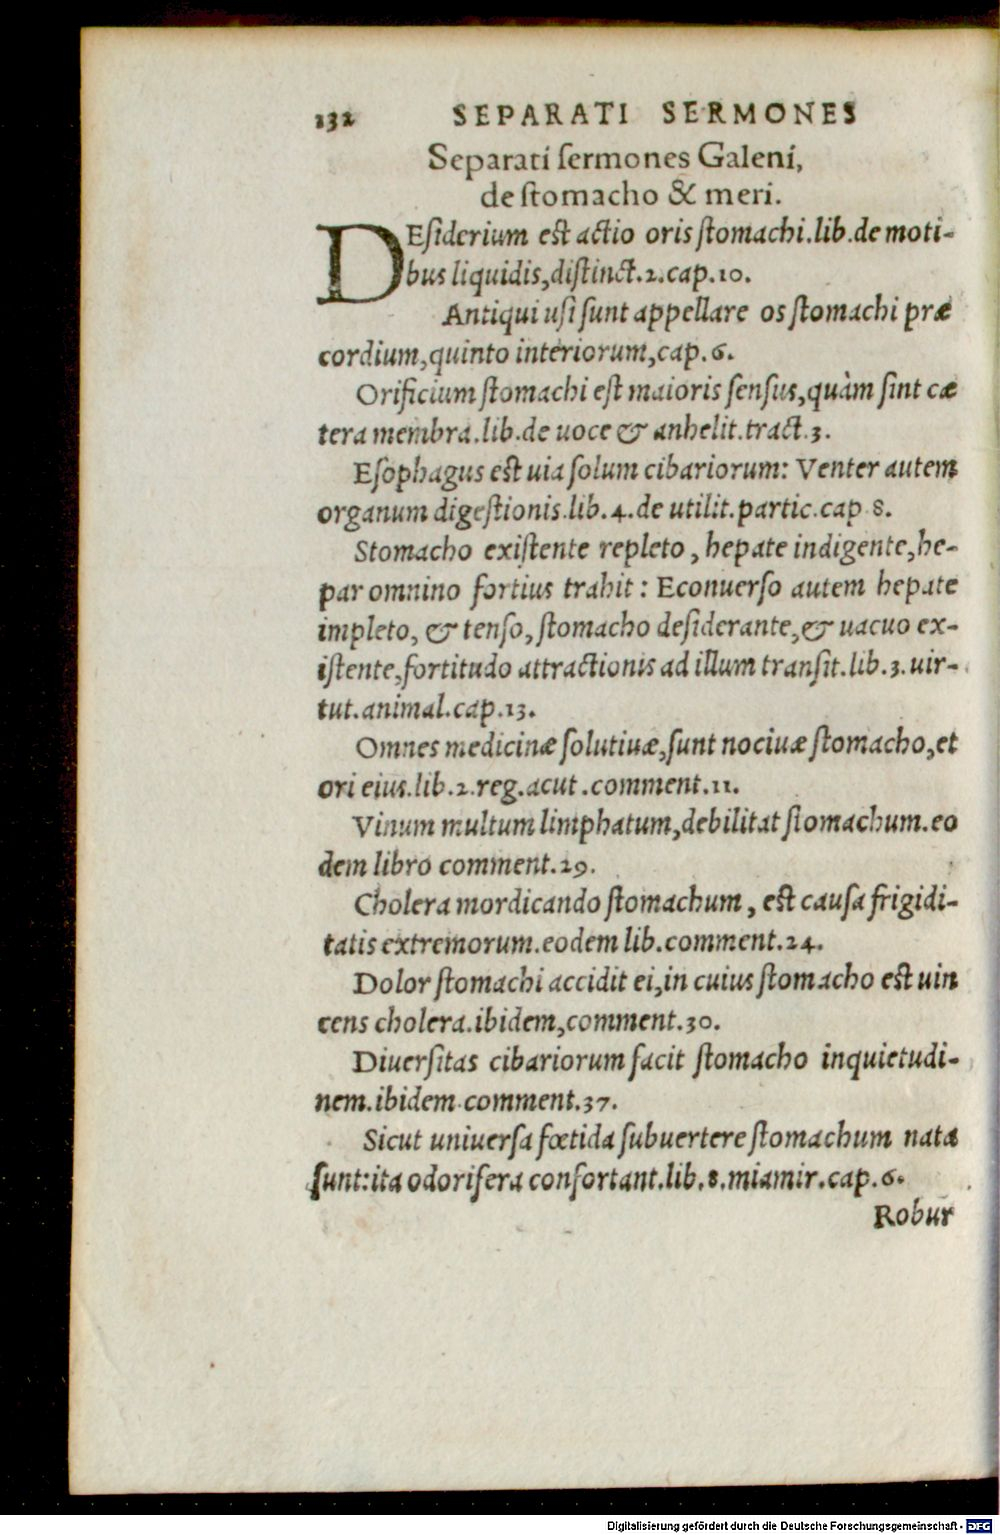 132 SEPARATI SERMONES
Separati ſermones Galeni,
de ſtomacho & meri.
DEſiderium eſt actio oris ſtomachi.lib.de moti-
bus liquidis,diſtinct.2.cap.10.
Antiqui uſi ſunt appellare os ſtomachi præ
cordium,quinto interiorum,cap.6.
Orificium ſtomachi eſt maioris ſenſus,quàm ſint cæ
tera membra.lib.de uoce & anhelit.tract.3.
Eſophagus eſt uia ſolum cibariorum: Venter autem
organum digeſtionis.lib.4.de utilit.partic.cap 8.
Stomacho exiſtente repleto, hepate indigente,he-
par omnino fortius trahit: Econuerſo autem hepate
impleto, & tenſo, ſtomacho deſiderante,& uacuo ex-
iſtente,fortitudo attractionis ad illum tranſit.lib.3.uir-
tut.animal.cap.13.
Omnes medicinæ ſolutiuæ,ſunt nociuæ ſtomacho,et
ori eius.lib.2.reg.acut.comment.11.
Vinum multum limphatum,debilitat ſtomachum.eo
dem libro comment.29.
Cholera mordicando ſtomachum, eſt cauſa frigidi-
tatis extremorum.eodem lib.comment.24.
Dolor ſtomachi accidit ei,in cuius ſtomacho eſt uin
cens cholera.ibidem,comment.30.
Diuerſitas cibariorum facit ſtomacho inquietudi-
nem.ibidem comment.37.
Sicut uniuerſa fœtida ſubuertere ſtomachum nata
ſunt:ita odorifera confortant.lib.8.miamir.cap.6.
Robur
Digitalisierung gefördert durch die Deutsche Forschungsgemeinschaft - DFG